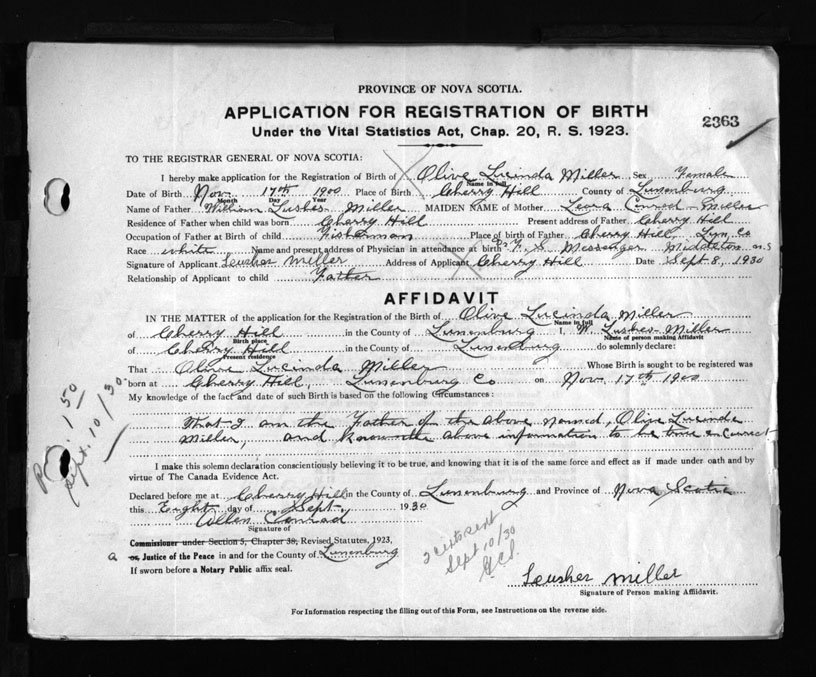 PROVINCE OF NOVA SCOTIA.
APPLICATION FOR REGISTRATION OF BIRTH
2363
Under the Vital Statistics Act, Chap. 20, R. S. 1923.
TO THE REGISTRAR GENERAL OF NOVA SCOTIA:
I hereby make application for the Registration of Birth of Olive Lucinda Miller Sex Female
Name in full
Date of Birth Nov. 17th 1900 Place of Birth Cherry Hill County of Lunenburg
Month Day Year
Name of Father William Lusher Miller MAIDEN NAME of Mother Leora Conrad Miller
Residence of Father when child was born Cherry Hill Present address of Father Cherry Hill
Occupation of Father at Birth of child Fisherman Place of birth of Father Cherry Hill, Lun, Co
Race white Name and present address of Physician in attendance at birth Dr. F. S. Messenger Middleton N.S
Signature of Applicant Leusher Miller Address of Applicant Cherry Hill Date Sept 8, 1930
Relationship of Applicant to child Father
AFFIDAVIT
IN THE MATTER of the application for the Registration of the Birth of Olive Lucinda Miller
Name in full
of Cherry Hill in the County of Lunenburg I, W. Lusher Miller
Birth place Name of person making Affidavit
of Cherry Hill in the County of Lunenburg do solemnly declare:
Present residence
That Olive Lucinda Miller Whose Birth is sought to be registered was
born at Cherry Hill, Lunenburg Co on Nov. 17th 1900
My knowledge of the fact and date of such Birth is based on the following Circumstances:
That I am the Father of the above named, Olive Lucinda
Miller, and know the above information to be true en Correct
I make this solemn declaration conscientiously believing it to be true, and knowing that it is of the same force and effect as if made under oath and by
virtue of The Canada Evidence Act.
Declared before me at Cherry Hill in the County of Lunenburg and Province of Nova Scotia
this Eight day of Sept. 1930
Allen Conrad
Signature of
Commissioner under Section 5, Chapter 38, Revised Statutes, 1923,
a or Justice of the Peace in and for the County of Lunenburg
If sworn before a Notary Public affix seal.
Leusher Miller
Signature of Person making Affidavit.
For Information respecting the filling out of this Form, see Instructions on the reverse side.
1 50
Sept. 10/30
Sept 10/30